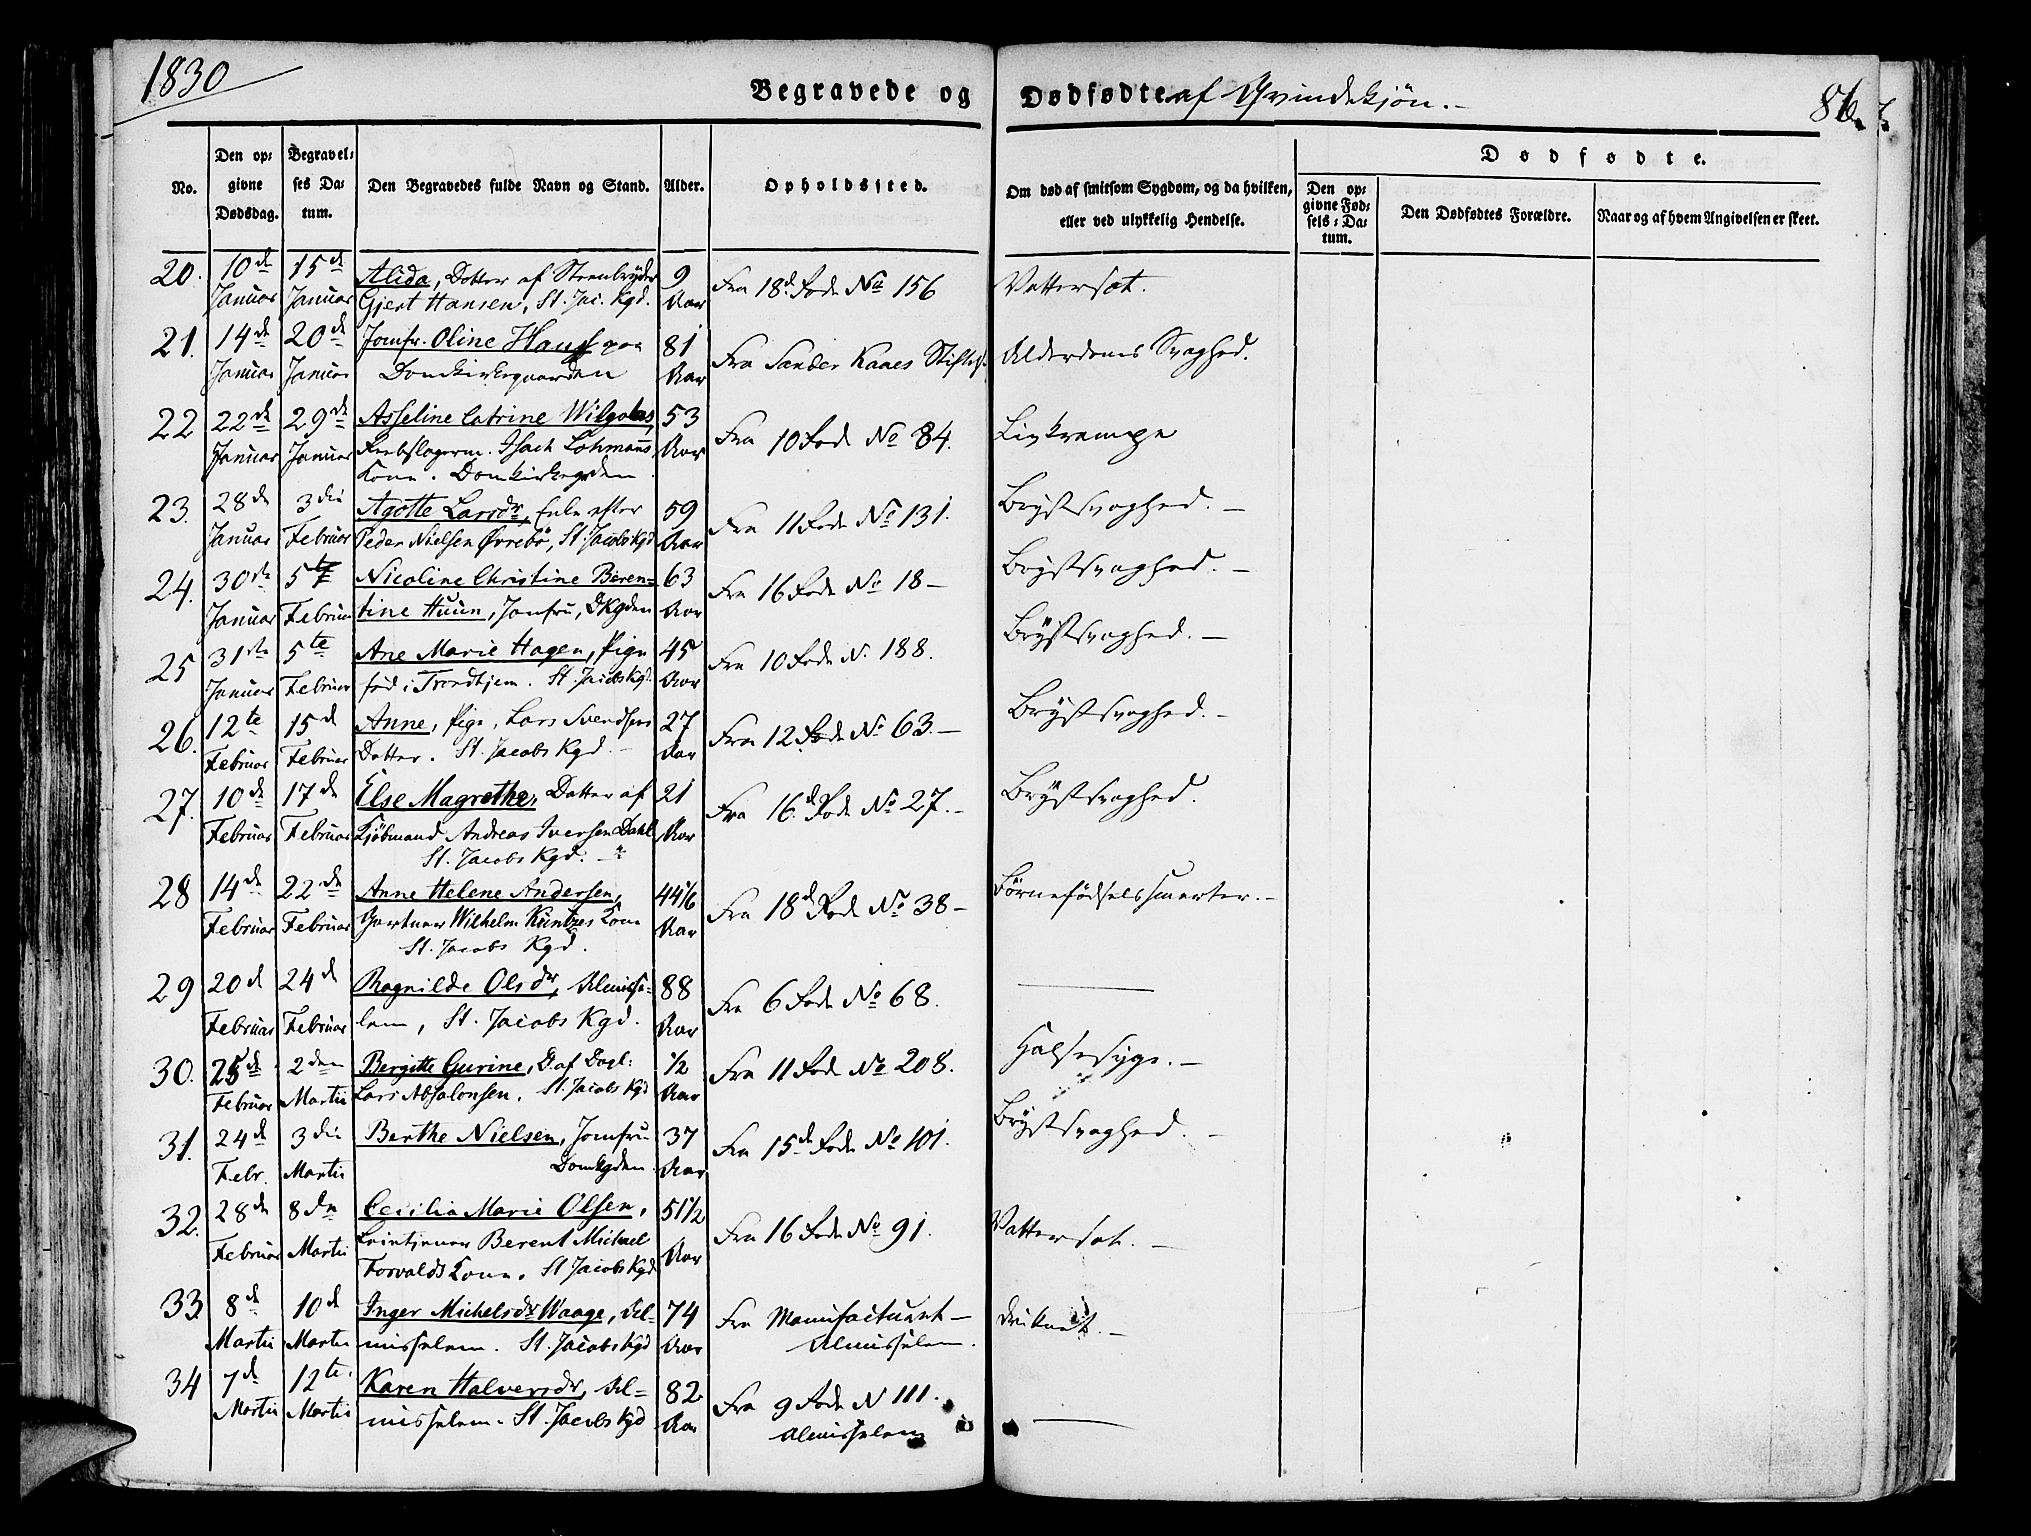 1830
Begravede og Dødfødte af Qvindekjøn.-
86.
No.
Den opgivne Dødsdag.
Begravelses Datum.
Den Begravedes fulde Navn og Stand.
Alder.
Opholdssted.
Om død af smitsom Sygdom, og da hvilken, eller ved ulykkelig Hendelse.
Dødfødte.
Den opgivne Fødsels-Datum.
Den Dødfødtes Forældre.
Naar og af hvem Angivelsen er skeet.
20. 10de Januar 15de Januar Alida, Dotter af Steenbryder 9 Aar Fra 18d. Rode No 156 Vattersot.
Gjert Hansen, St. Jac. Kgd.
21. 14de Januar 20de Januar Jomfr. Oline Hauss paa 81 Aar Fra Sander Kaaes Stiftels. Alderdoms Svaghed.
Domkirkegaarden
22 22de Januar 29de Januar Asseline Catrine Wilgohs, 53 Aar Fra 10 Rode No 84. Livkrampe
Reebslagerm. Isach Lohmanns
Kone. Domkirkegrden
23. 28de Januar 3die Februar Agotte Larsdr, Enke efter 59 Aar Fra 11 Rode No 131. Brystsvaghed.-
Peder Nielsen Øvrebø, St. Jacobs Kgd
24. 30te Januar 5te Februar Nicoline Christine Beren= 63 Aar Fra 16 Rode No 18- Brystsvaghed.-
tine Huun, Jomfru, DKgden
25 31te Januar 5te Februar Ane Marie Hagen, Pige 45 Aar Fra 10 Rode N. 188. Brystsvaghed.-
fød i Trondhjem. St. Jacobs Kgd.
26. 12te Februar 15d Februar Anne, Pige, Lars Svendsens 27 Aar Fra 12. Rode No 63.- Brystsvaghed.-
Dotter. St. Jacobs Kgd.-
27. 10de Februar 17de Februar Else Magrethe, Dotter af 21 Aar Fra 16.d Rode No 27.- Brystsvaghed.
Kjøbmand Andreas Iversen Dahl
St. Jacobs Kgd.-
28 14de Februar 22de Februar Anne Helene Andersen, 44 1/6 Aar Fra 18d Rode No 38- Børnefødselssmerter.-
Gartner Wilhelm Küntzes Kone
St. Jacobs Kgd.
29 20d Februar 24d Februar Ragnilde Olsdr, Almisse- 88 Aar Fra 6 Rode No 68.
lem, St. Jacobs Kgd.
30. 25de Februar 2den Martii Bergitte Gurine, D. af Dagl: 1/2 Aar Fra 11 Rode No 208. Halssyge.-
Lars Absalonsen. St. Jacobs Kgd
31. 24d Febr. 3die Martii Berthe Nielsen, Jomfru 37 Aar Fra 15de Rode No 101. Brystsvaghed.-
Domkgden.
32. 28de Februar 8de Martii Cecilia Marie Olsen, 51 1/2 Aar Fra 16 Rode No 91. Vattersot.-
Leietjener Berent Michael
Forvalds Kone. St Jacobs Kgd
33 8de Martii 10d Martii Inger Michelsdr Waage, Al= 74 Aar Fra Manufacturet-
misselem. St. Jacobs Kgd Almisselem.
34 7d Martii 12te Martii Karen Halversdr, Al= 82 Aar Fra 9 Rode N 111.
misselem. St. Jacobs Kgd Almisselem